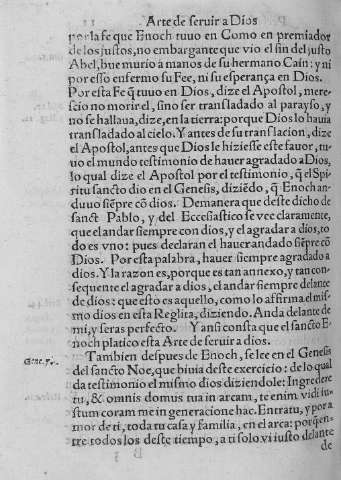 Arte de seruir a Dios
por la fe que Enoch tuuo en Como en premiador
de los justos, no embargante que vio el fin del justo
Abel, que murio a manos de su hermano Cain: y ni
por esso enfermo su Fee, ni su esperança en Dios.
Por esta Fe q̃ tuuo en Dios, dize el Apostol, mere-
scio no morir el, sino ser transladado al parayso, y
no se hallaua, dize, en la tierra: porque Dios lo hauia
transladado al cielo. Y antes de su translacion, dize
el Apostol, antes que Dios le hiziesse este fauor, tu-
uo el mundo testimonio de hauer agradado a Dios,
lo qual dize el Apostol por el testimonio, q̃ el Spi-
ritu sancto dio en el Genesis, diziẽdo, q̃ Enoch an-
duuo siẽpre cõ dios. De manera que deste dicho de
sanct Pablo, y del Ecclesiastico se vee claramente,
que el andar siempre con dios, y el agradar a dios, to
do es vno: pues declaran el hauer andado siẽpre cõ
Dios. Por esta palabra, hauer siempre agradado a
dios. Y la razon es, porque es tan annexo, y tan con-
sequente el agradar a dios, el andar siempre delante
de dios: que esto es aquello, como lo affirma el mis-
mo dios en esta Reglita, diziendo. Anda delante de
mi, y seras perfecto. Y ansi consta que el sancto E-
noch platico esta Arte de seruir a dios.
Tambien despues de Enoch, se lee en el Genesis
Gene. 7.
del sancto Noe, que biuia deste exercicio: de lo qual
da testimonio el mismo dios diziendole: Ingredere
tu, & omnis domus tua in arcam, te enim vidi iu-
stum coram me in generatione hac. Entra tu, y por a
mor de ti, toda tu casa y familia, en el arca: porq̃ en-
tre todos los deste tiempo, a ti solo vi iusto delante
de